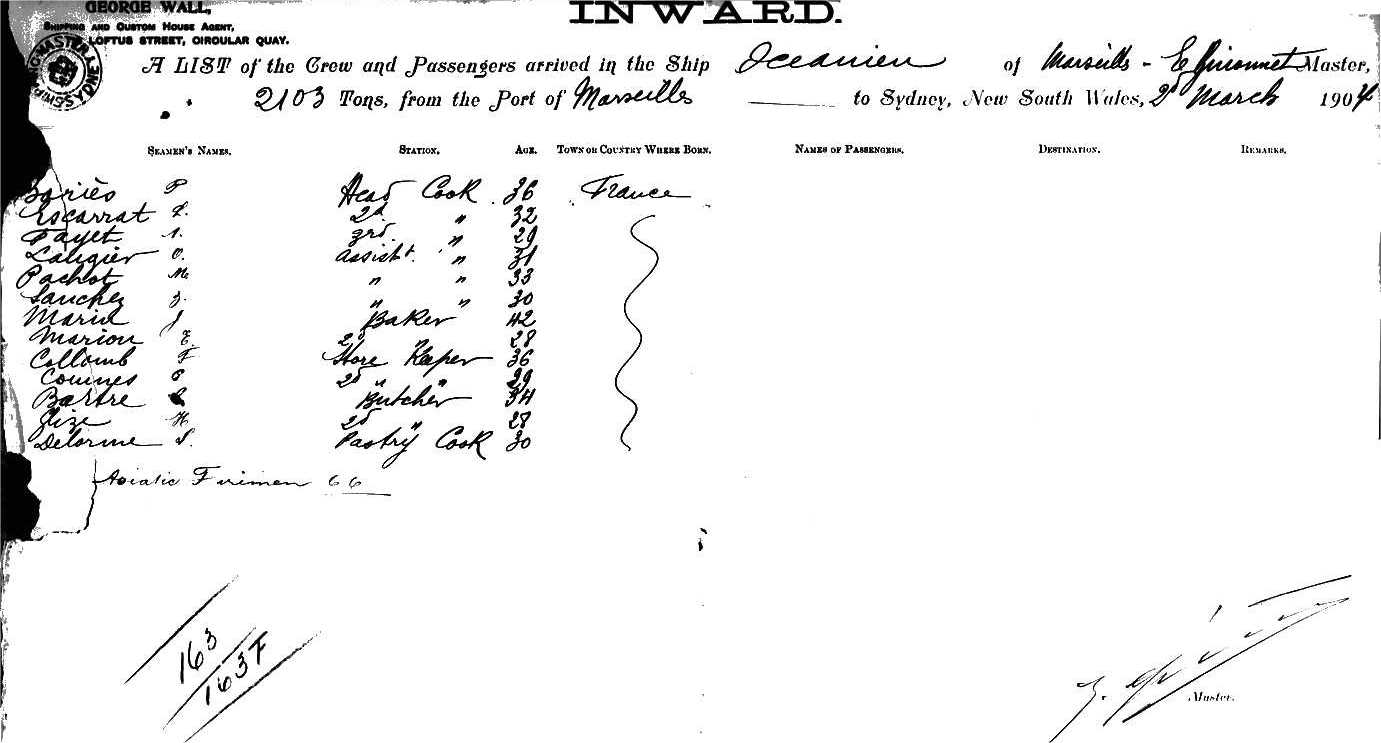 GEORGE WALL,
SHIPPING AND CUSTOM HOUSE AGENT,
LOFTUS STREET, CIRCULAR QUAY.
INWARD.
SHIPPING MASTER SYDNEY
A LIST of the Crew and Passengers arrived in the Ship Oceanien of Marseilles - E Master,
2103 Tons, from the Port of Marseilles to Sydney, New South Wales, 2d March 1904
SEAMEN'S NAMES. STATION. AGE. TOWN OR COUNTRY WHERE BORN. NAMES OF PASSENGERS. DESTINATION. REMARKS.
Bariès P Head Cook 36 France
Escarrat 2d " 32
Fayet 3rd " 29
Laugier O. Assist. " 31
Pachot M " " 33
Sanchez " " 30
Marin J Baker 42
Marion E. 2d " 28
Collomb F Store Keeper 36
2d " 29
Bartre Butcher 34
H 2d " 28
Delorme Pastry Cook 30
Asiatic Firemen 66
163
163F
Master.